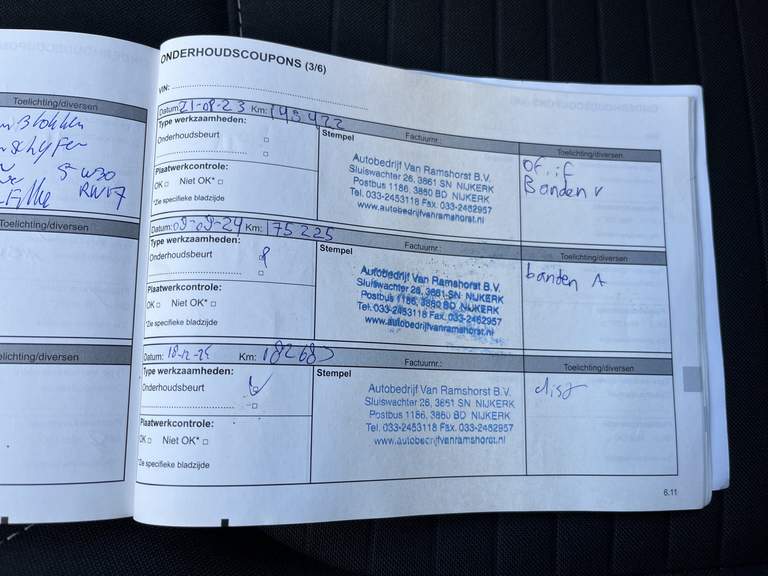 Toelichting/diversen
Blokken
5w30
RW17
Toelichting/diversen
elichting/diversen
ONDERHOUDSCOUPONS (3/6)
VIN:
Datum: 21-08-23 Km:
Type werkzaamheden:
Onderhoudsbeurt □
□
Plaatwerkcontrole:
OK □ Niet OK* □
*Zie specifieke bladzijde
Stempel
Factuurnr.:
Autobedrijf Van Ramshorst B.V.
Sluiswachter 26, 3861 SN NIJKERK
Postbus 1186, 3860 BD NIJKERK
Tel. 033-2453118 Fax. 033-2462957
www.autobedrijfvanramshorst.nl
Toelichting/diversen
of.if
Banden v
Datum: 09-09-24 Km: 175225
Type werkzaamheden:
Onderhoudsbeurt
□
Plaatwerkcontrole:
OK □ Niet OK* □
*Zie specifieke bladzijde
Stempel
Factuurnr.:
Autobedrijf Van Ramshorst B.V.
Sluiswachter 26, 3861 SN NIJKERK
Postbus 1186, 3860 BD NIJKERK
Tel. 033-2453118 Fax. 033-2462957
www.autobedrijfvanramshorst.nl
Toelichting/diversen
banden A
Datum: Km: 182687
Type werkzaamheden:
Onderhoudsbeurt
□
Plaatwerkcontrole:
OK □ Niet OK* □
*Zie specifieke bladzijde
Stempel
Factuurnr.:
Autobedrijf Van Ramshorst B.V.
Sluiswachter 26, 3861 SN NIJKERK
Postbus 1186, 3860 BD NIJKERK
Tel. 033-2453118 Fax. 033-2462957
www.autobedrijfvanramshorst.nl
Toelichting/diversen
6.11